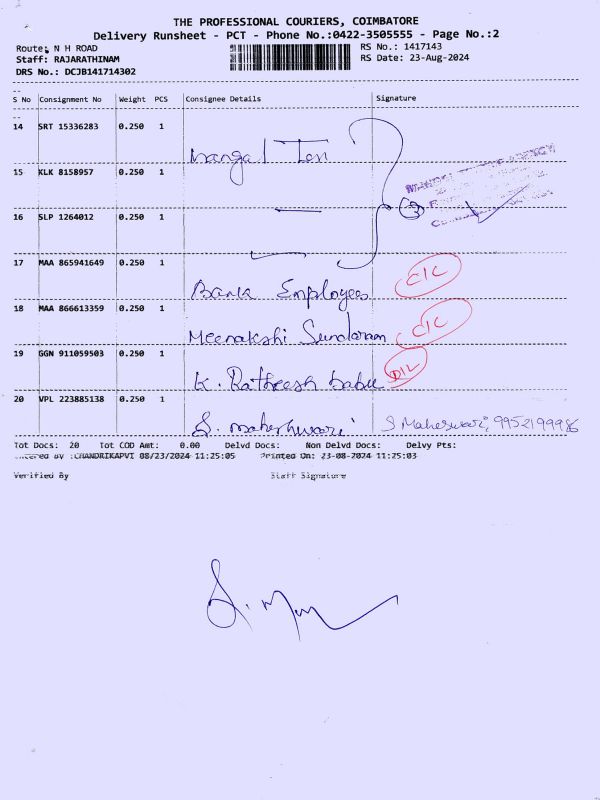 THE PROFESSIONAL COURIERS, COIMBATORE
Delivery Runsheet - PCT - Phone No.:0422-3505555 - Page No.:2
Route: N H ROAD
RS No.: 1417143
Staff: RAJARATHINAM
RS Date: 23-Aug-2024
DRS No.: DCJB141714302
S No Consignment No Weight PCS Consignee Details Signature
14 SRT 15336283 0.250 1
15 KLK 8158957 0.250 1
16 SLP 1264012 0.250 1
17 MAA 865941649 0.250 1 Bank Employees
18 MAA 866613359 0.250 1 Meenakshi Sundaram
19 GGN 911059503 0.250 1 K. Ratheesh babu D/L
20 VPL 223885138 0.250 1 S. maheshwari S Maheswari, 9952199986
Tot Docs: 20 Tot COD Amt: 0.00 Delvd Docs: Non Delvd Docs: Delvy Pts:
Entered By :CHANDRIKAPVI 08/23/2024 11:25:05 Printed On: 23-08-2024 11:25:03
Verified By Staff Signature